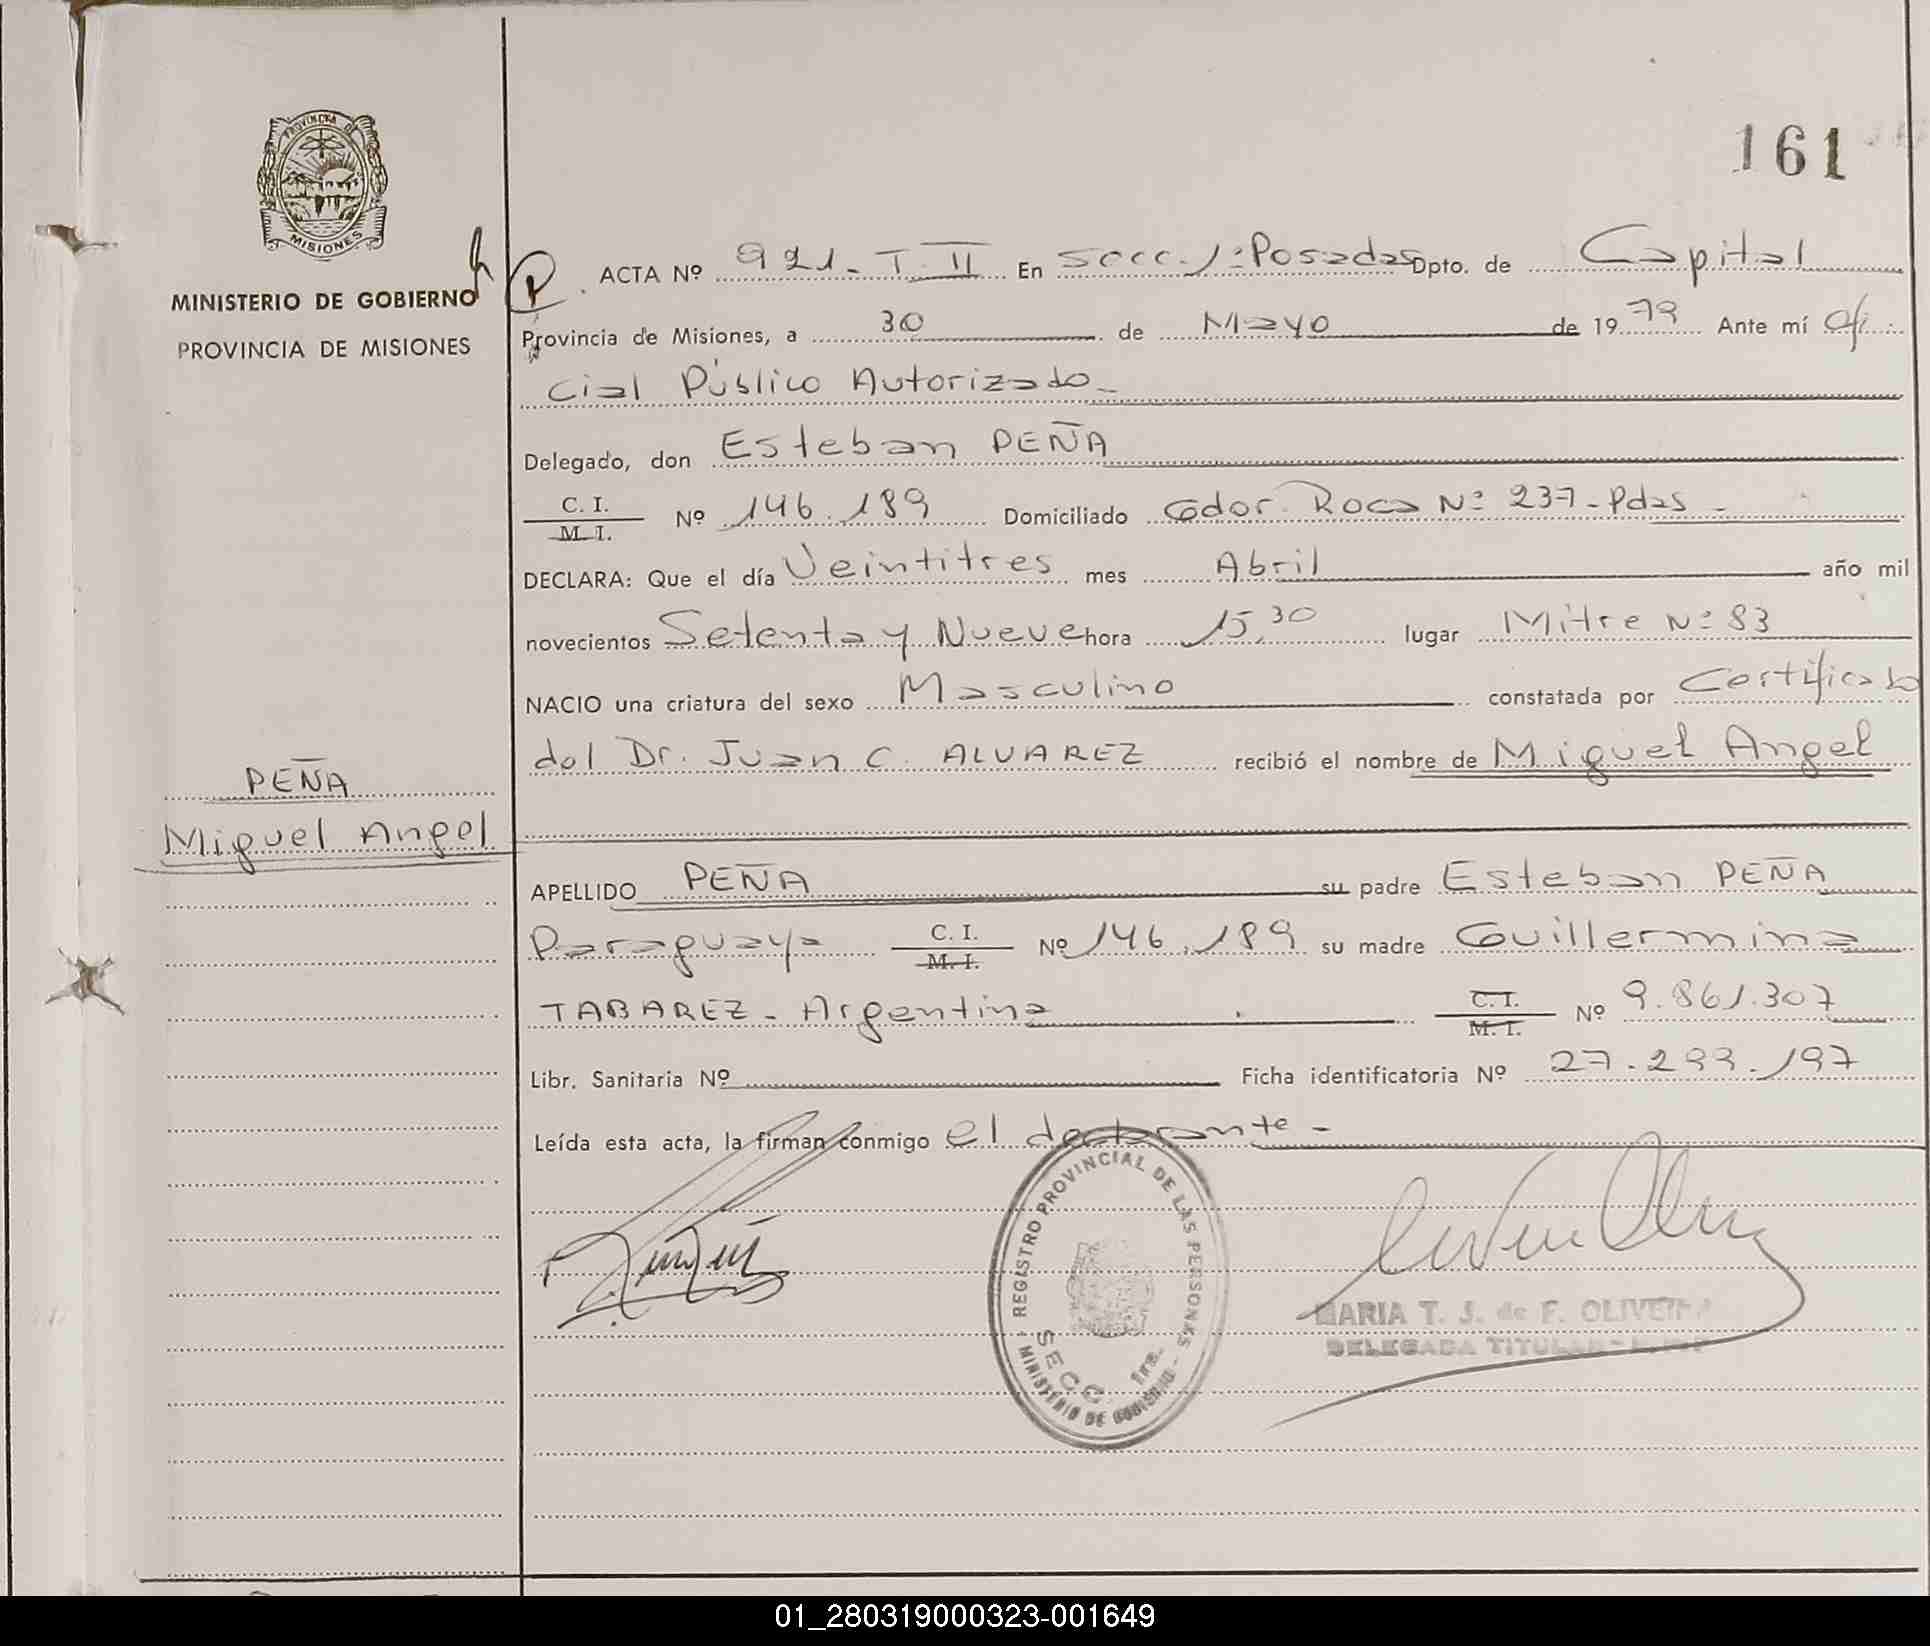 161
PROVINCIA DE
MISIONES
MINISTERIO DE GOBIERNO
PROVINCIA DE MISIONES
ACTA Nº 921-T.II En Secc. 1ª Posadas Dpto. de Capital
Provincia de Misiones, a 30 de Mayo de 1979 Ante mí Ofi-
cial Público Autorizado-
Delegado, don Esteban PEÑA
C. I.
M. I. Nº 146.189 Domiciliado Gdor. Roca Nº 237-Pdas-
DECLARA: Que el día Veintitres mes Abril año mil
novecientos Setenta y Nueve hora 15,30 lugar Mitre Nº 83
NACIO una criatura del sexo Masculino constatada por Certificado
del Dr. Juan C. ALVAREZ recibió el nombre de Miguel Angel
PEÑA
Miguel Angel
APELLIDO PEÑA su padre Esteban PEÑA
Paraguaya C. I.
M. I. Nº 146.189 su madre Guillermina
TABAREZ - Argentina C. I.
M. I. Nº 9.861.307
Libr. Sanitaria Nº Ficha identificatoria Nº 27.299.197
Leída esta acta, la firman conmigo el declarante-
REGISTRO PROVINCIAL DE LAS PERSONAS
SECC. 1ra.
MINISTERIO DE GOBIERNO
MARIA T. J. de F. OLIVEIRA
DELEGADA TITULAR
01_280319000323-001649